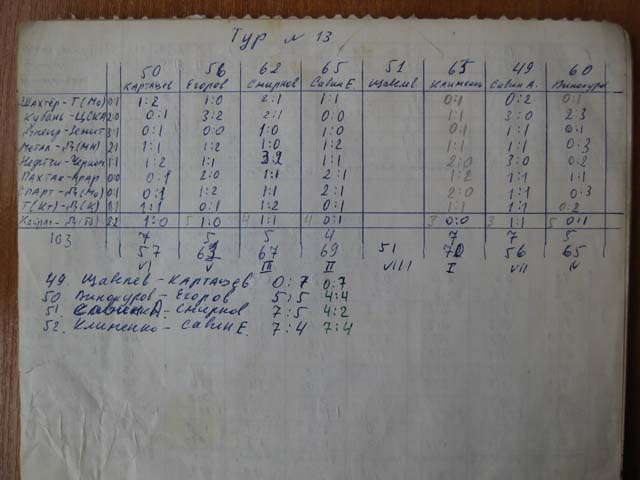 Тур № 13
50 56 62 65 51 63 49 60
Карташев Егоров Смирнов Савин Е Щавлев Клименко Савин А. Винокуров
Шахтёр-Т(Мо) 0:1 1:2 1:0 2:1 1:1 0:1 0:2 0:1
Кубань-ЦСКА 2:0 0:1 3:2 2:1 0:0 1:1 3:0 2:3
Днепр-Зенит 3:1 0:1 0:0 1:0 1:0 0:1 1:1 0:1
Метал-Д(Мн) 2:1 1:1 1:2 1:0 1:2 1:1 1:0 0:3
Нефтчи-Черном 1:1 1:2 1:1 3:2 1:1 2:0 3:0 0:2
Пахтак-Арар 0:0 0:1 2:0 1:1 2:1 1:2 1:1 1:1
Спарт-Д(Мо) 0:1 0:1 1:2 1:1 2:1 2:0 1:1 0:3
Т(Кт)-Д(К) 1:1 0:1 1:2 0:1 1:1 1:1 0:2
Кайрат-Д(Тб) 2:2 1:0 5 1:0 4 1:1 4 0:1 3 0:0 3 1:1 5 0:1
103 7 5 5 4 7 7 5
57 67 69 51 70 56 65
VI V III II VIII I VII IV
49 Щавлев-Карташев 0:7 0:7
50 Винокуров-Егоров 5:5 4:4
51. Савин А.-Смирнов 7:5 4:2
52. Клименко-Савин Е. 7:4 7:4